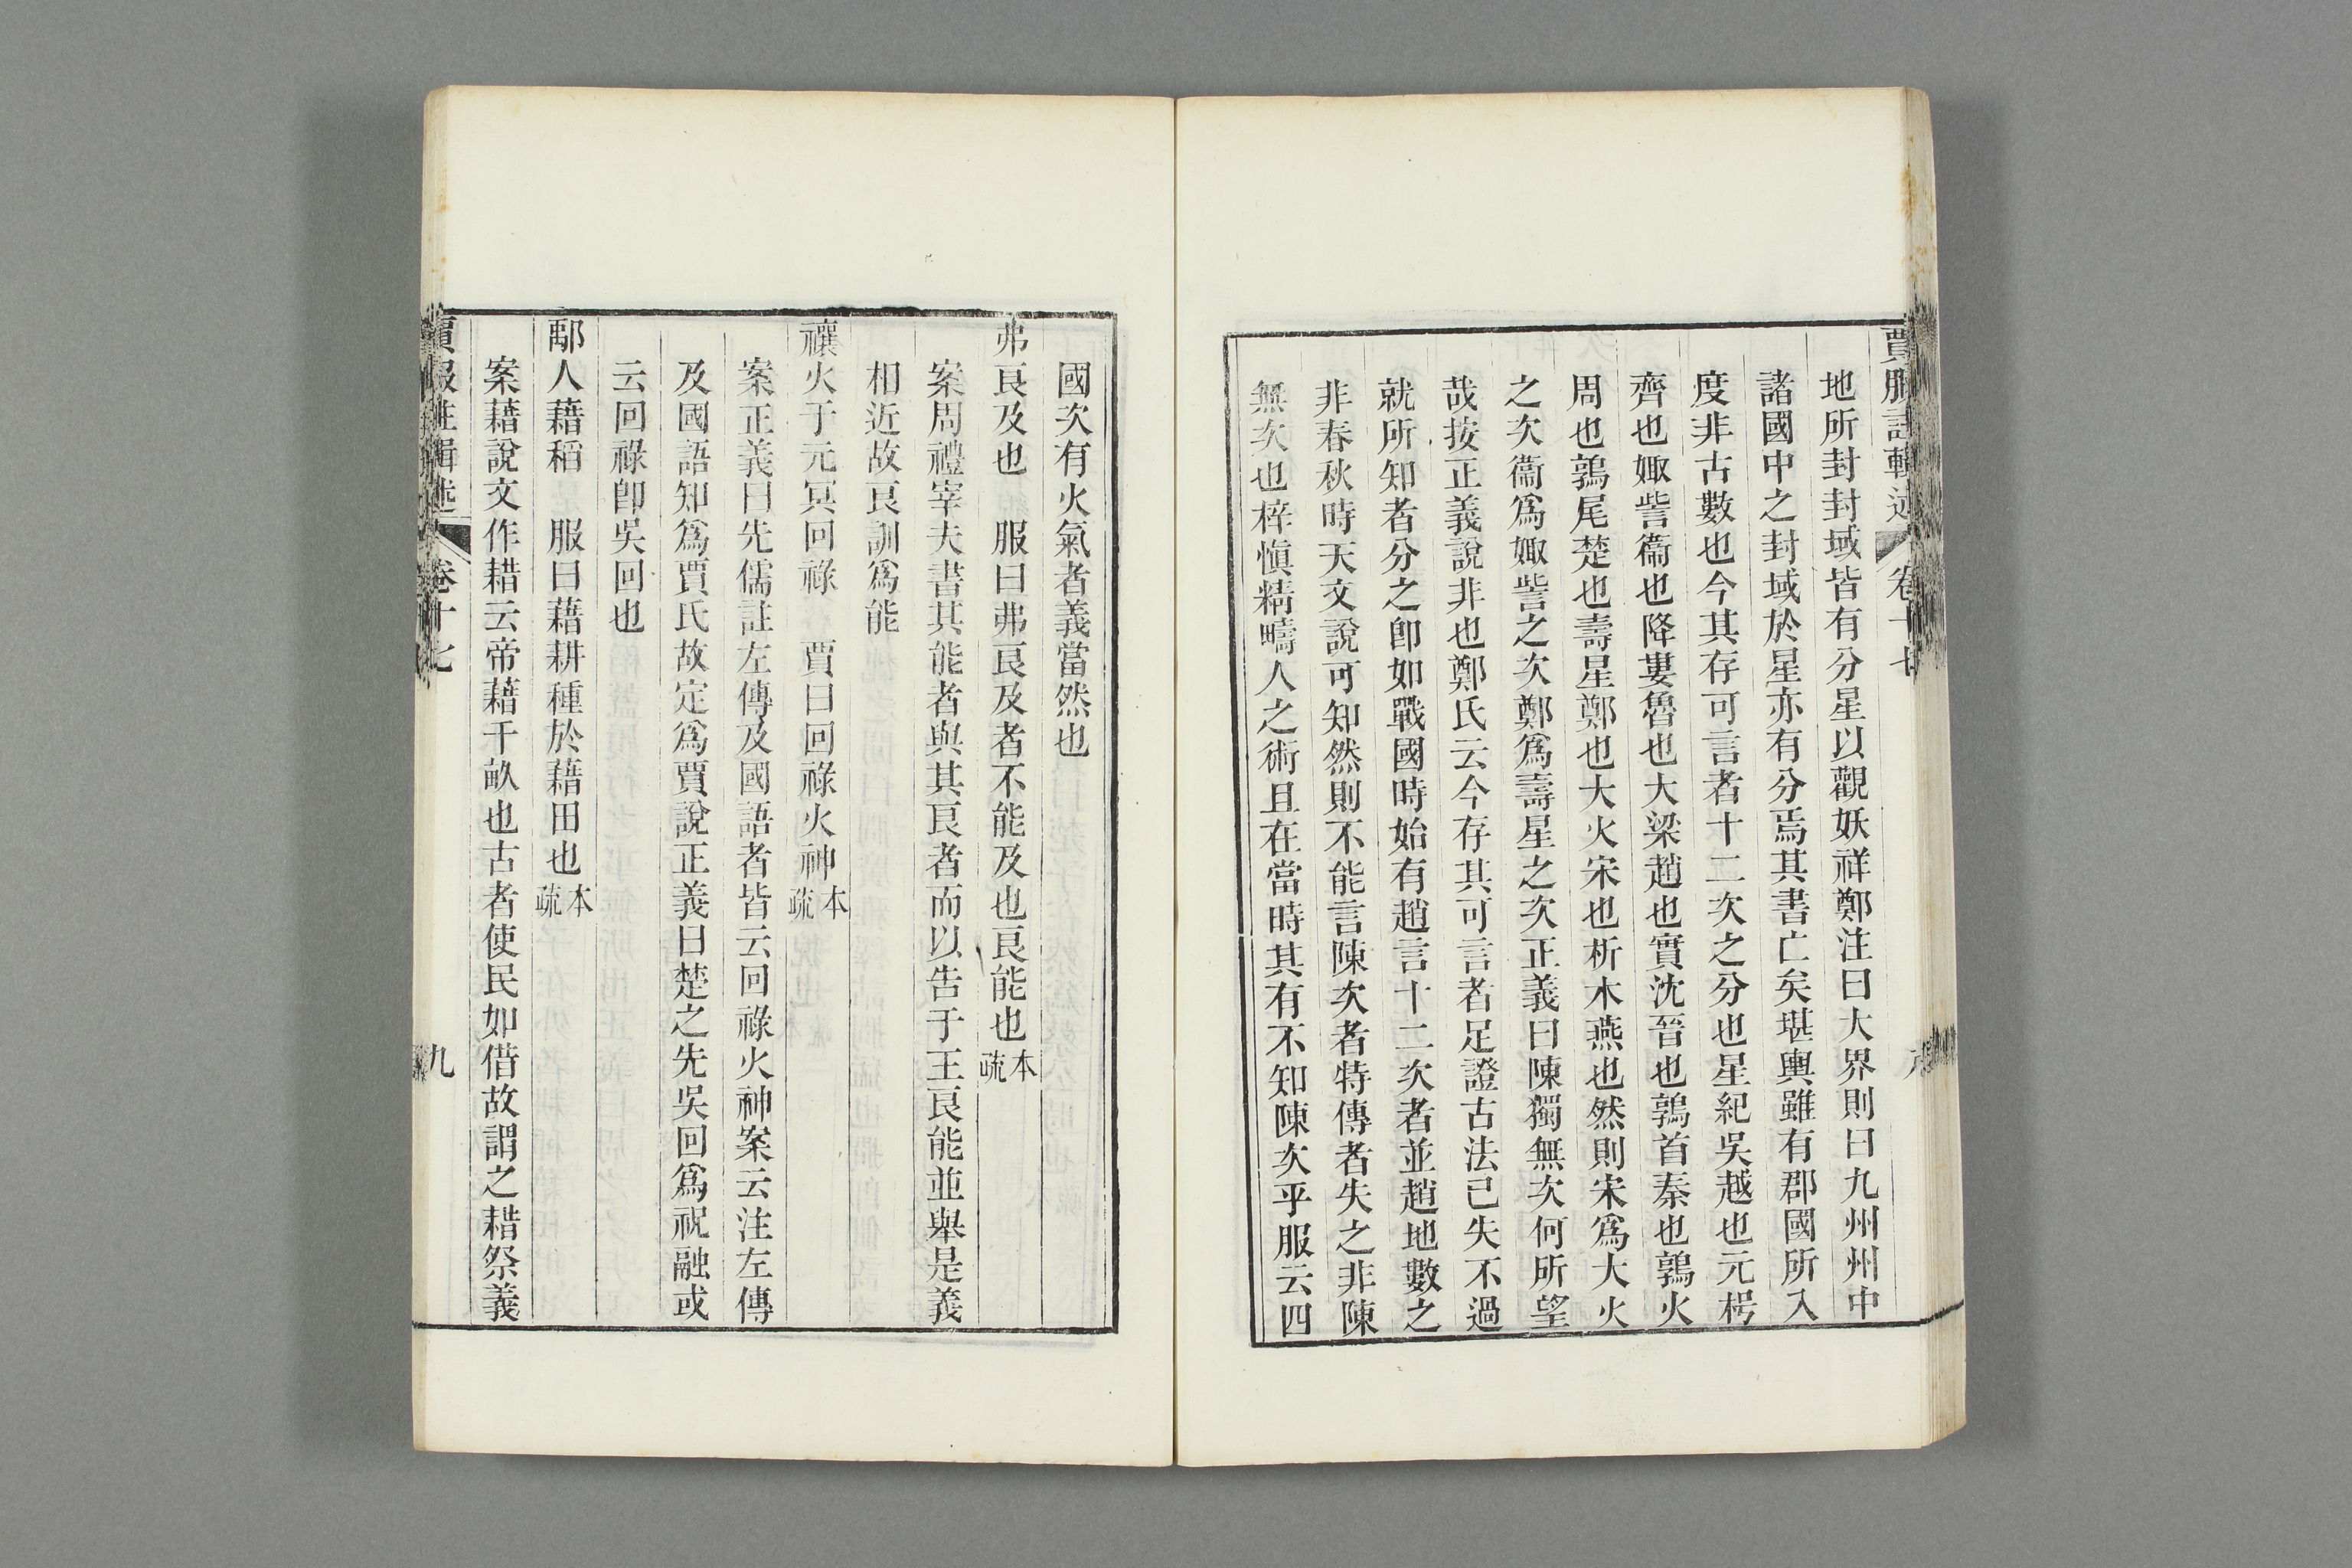 賈服註輯述 卷十七
地所封封域皆有分星以觀妖祥鄭注曰大界則曰九州州中
諸國中之封域於星亦有分焉其書亡矣堪輿雖有郡國所入
度非古數也今其存可言者十二次之分也星紀吳越也元枵
齊也娵訾衞也降婁魯也大梁趙也實沈晉也鶉首秦也鶉火
周也鶉尾楚也壽星鄭也大火宋也析木燕也然則宋爲大火
之次衞爲娵訾之次鄭爲壽星之次正義曰陳獨無次何所望
哉按正義說非也鄭氏云今存其可言者足證古法已失不過
就所知者分之卽如戰國時始有趙言十二次者並趙地數之
非春秋時天文說可知然則不能言陳次者特傳者失之非陳
無次也梓愼精疇人之術且在當時其有不知陳次乎服云四
國次有火氣者義當然也
弗良及也 服曰弗良及者不能及也良能也本疏
案周禮宰夫書其能者與其良者而以告于王良能並舉是義
相近故良訓爲能
禳火于元冥回祿 賈曰回祿火神本疏
案正義曰先儒註左傳及國語者皆云回祿火神案云注左傳
及國語知爲賈氏故定爲賈說正義曰楚之先吳回爲祝融或
云回祿卽吳回也
鄅人藉稻 服曰藉耕種於藉田也本疏
案藉說文作耤云帝藉千畝也古者使民如借故謂之耤祭義
賈服註輯述 卷十七 九